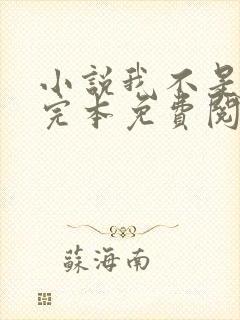 小說我不是
完本免費閱
蘇海南